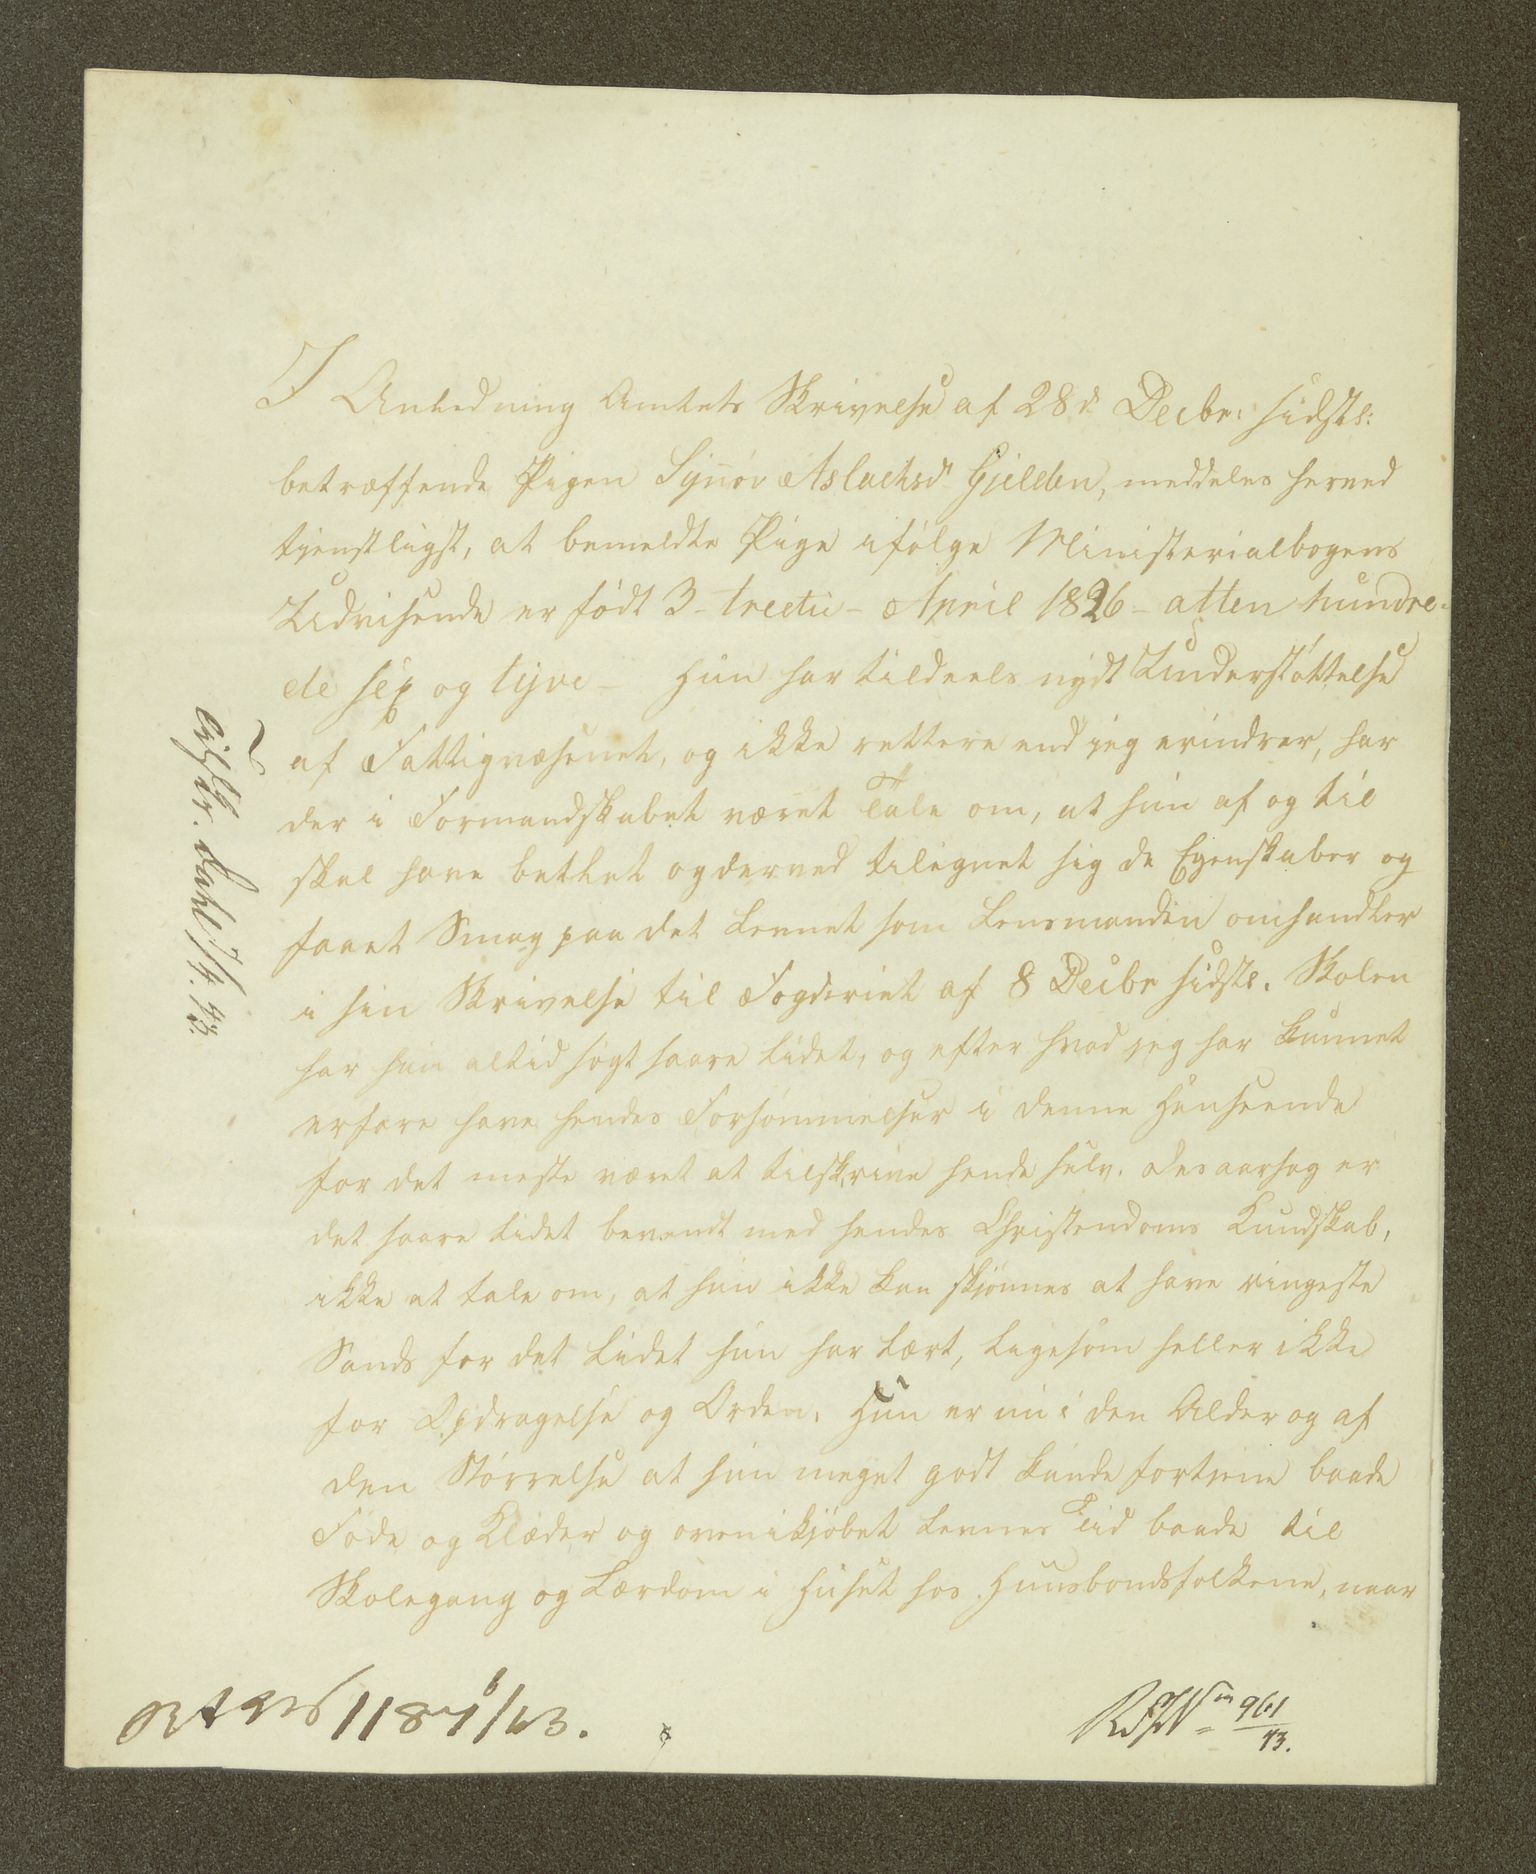 I Anledning Amtets Skrivelse af 28d Decbr: sidstl:
betræffende Pigen Synøv Aslachsdr Gjelden, meddeles herved
tjenstligst, at bemeldte Pige ifølge Ministerialbogens
Udvisende er født 3 - tredie - April 1826 - atten hundre-
de sex og tyve - Hun har tildeels nydt Understøttelse
af Fattigvæsenet, og ikke rettere end jeg erindrer, har
der i Formandskabet været Tale om, at hun af og til
skal have betlet og derved tilegnet sig de Egenskaber og
faaet Smag paa det Levnet som Lensmanden omhandler
i sin Skrivelse til Fogderiet af 8 Decbr sidstl. Skolen
har hun altid søgt saare lidet, og efter hvad jeg har kunnet
erfare have hendes Forsømmelser i denne Henseende
for det meste været at tilskrive hende selv. Desaarsag er
det saare lidet bevendt med hendes Christendoms Kundskab,
ikke at tale om, at hun ikke kan skjønnes at have ringeste
Sands for det Lidet hun har lært, ligesom heller ikke
for Opdragelse og Orden. Hun er nu i den Alder og af
den Størrelse at hun meget godt kunde fortjene baade
Føde og Klæder og ovenikjøbet levnes Tid baade til
Skolegang og Lærdom i Huset hos Huusbondsfolkene, naar
Dahl 7/4. 43.
1187/43.
961/43.